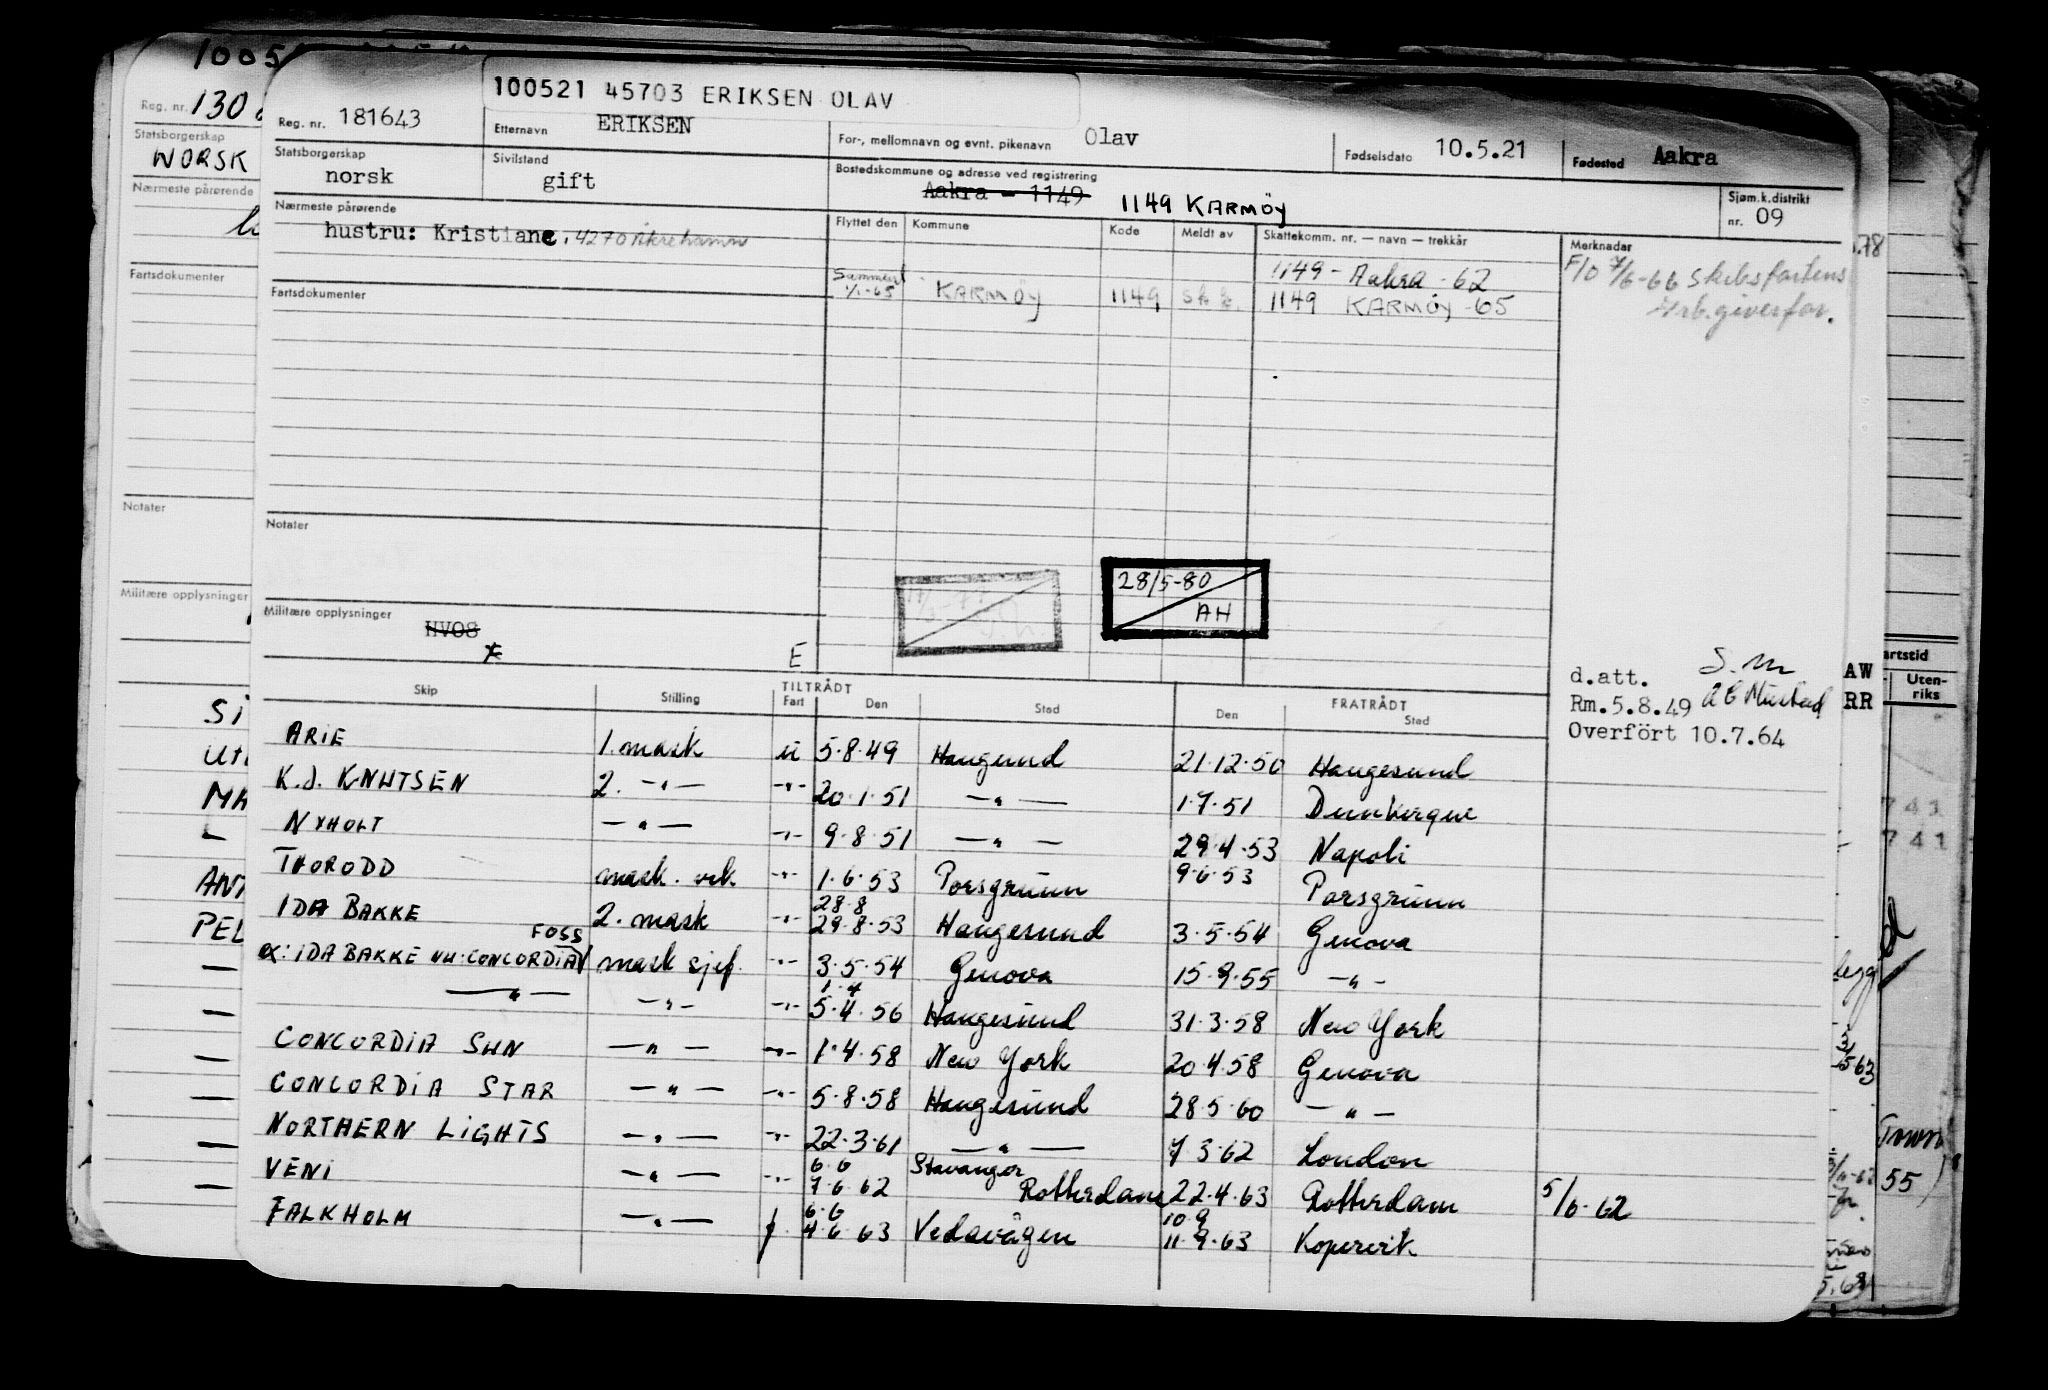 1005
100521 45703 ERIKSEN OLAV
Reg. nr. 130
Reg. nr. 181643
Etternavn ERIKSEN
For-, mellomnavn og evnt. pikenavn Olav
Fødselsdato 10.5.21
Fødested Aakra
Statsborgerskap
NORSK
Statsborgerskap
norsk
Sivilstand
gift
Bostedskommune og adresse ved registrering
Aakra - 1149 1149 KARMÖY
Sjøm.k.distrikt
nr. 09
Nærmeste pårørende
Nærmeste pårørende
hustru: Kristiane, 4270 Åkrehamn
Flyttet den Kommune Kode Meldt av Skattekomm. nr. — navn — trekkår
Merknader
F/O 7/6-66 Skibsfartens
Arb.giverfor.
1149 - Aakra - 62
Sammensl.
1/1-65 KARMÖY 1149 1149 KARMÖY -65
Fartsdokumenter
Fartsdokumenter
Notater
Notater
28/5-80
AH
Militære opplysninger
Militære opplysninger
HVO8
E
d.att. S.M
Rm.5.8.49 AE Mustad
Overfört 10.7.64
AW
RR
artstid
Uten-
riks
Skip Stilling TILTRÅDT Fart Den Sted FRATRÅDT Den Sted
ARIE 1. mask u 5·8·49 Haugesund 21·12·50 Haugesund
K.J. KNUTSEN 2. —"— -"- 20·1·51 —"— 1·7·51 Dunkerque
NYHOLT —"— -"- 9·8·51 —"— 29·4·53 Napoli
THORODD mask. vik. -"- 1·6·53 Porsgrunn 9·6·53 Porsgrunn
28·8
IDA BAKKE 2. mask -"- 29·8·53 Haugesund 3·5·54 Genova
FOSS
ex: IDA BAKKE NU: CONCORDIA mask sjef. -"- 3·5·54 Genova 15·9·55 —"—
1·4
—"— —"— -"- 5·4·56 Haugesund 31·3·58 New York
CONCORDIA SUN —"— -"- 1·4·58 New York 20·4·58 Genova
CONCORDIA STAR —"— -"- 5·8·58 Haugesund 28·5·60 —"—
NORTHERN LIGHTS —"— -"- 22·3·61 —"— 7·3·62 London
6·6 Stavanger
VENI —"— -"- 7·6·62 Rotterdam 22·4·63 Rotterdam 5/6·62
6·6 10·9
FALKHOLM —"— f 4·6·63 Vedavågen 11·9·63 Kopervik
741
741
55